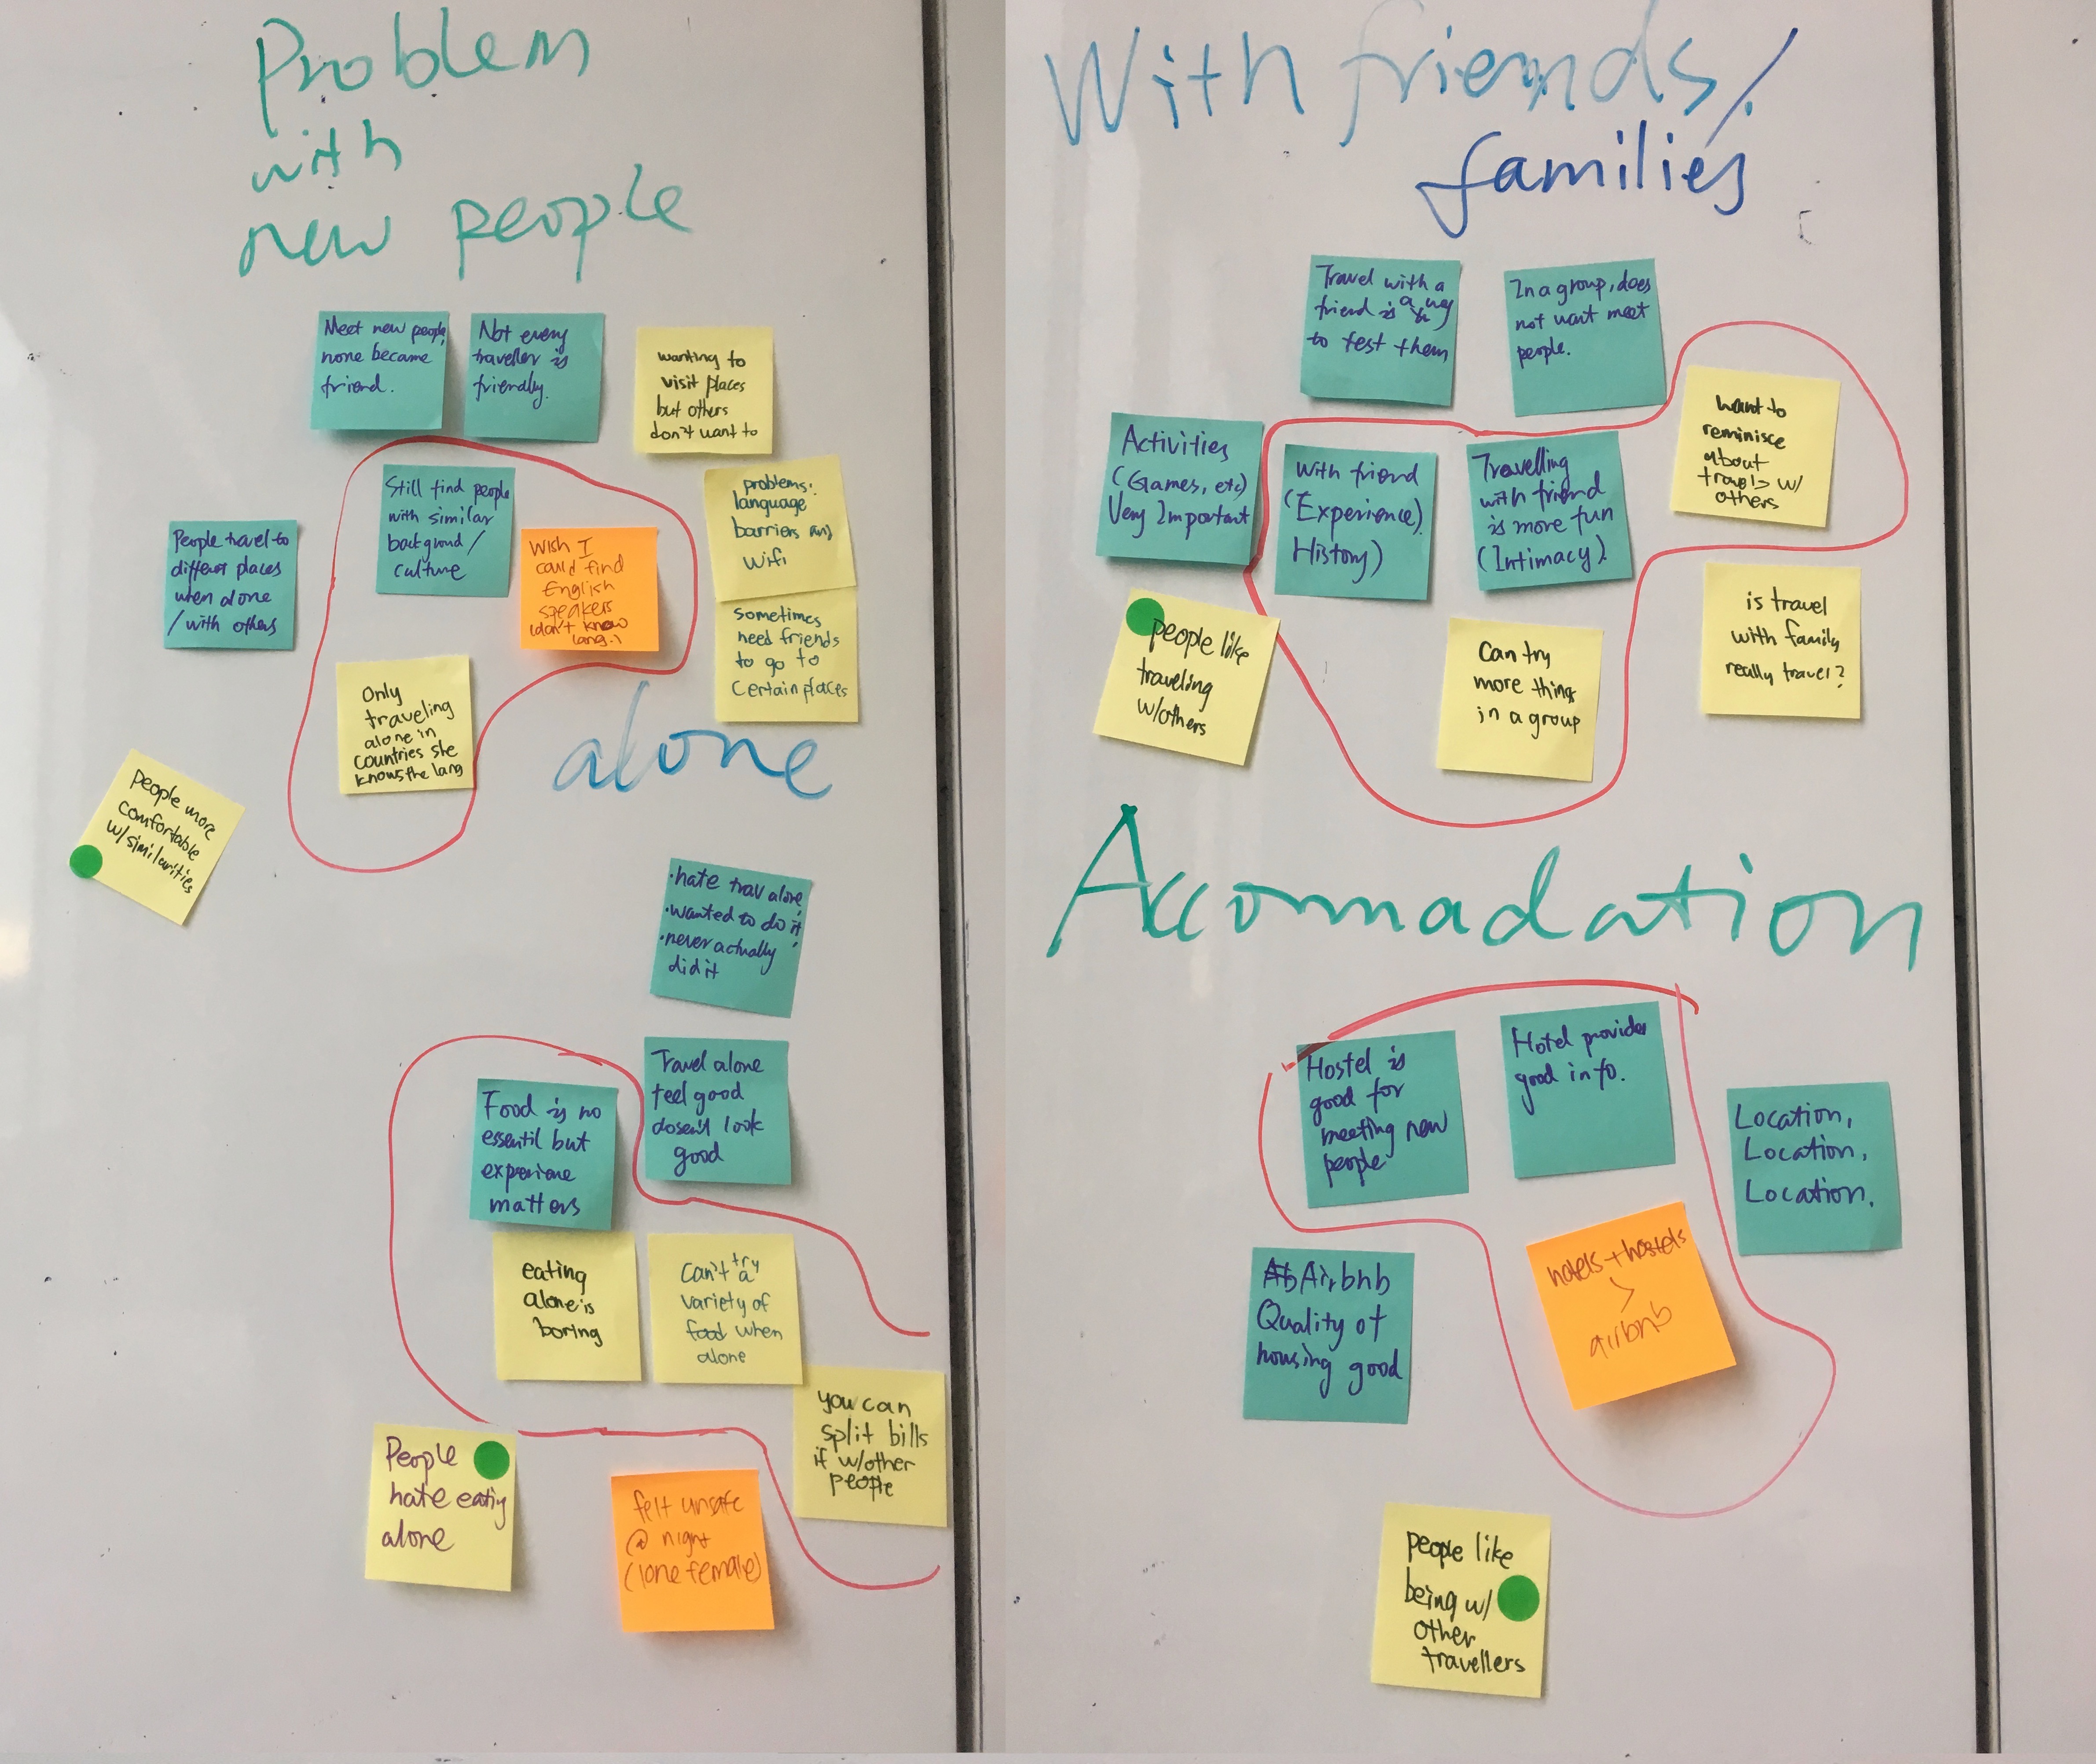 Problem
with
new people
Meet new people,
none became
friend.
Not every
traveller is
friendly.
wanting to
visit places
but others
don't want to
Still find people
with similar
backgroud/
culture
Wish I
could find
English
speakers
(don't know
lang.)
problems:
language
barriers and
wifi
People travel to
different places
when alone
/with others
sometimes
need friends
to go to
certain places
Only
traveling
alone in
countries she
knows the lang
People more
comfortable
w/similarities
alone
•hate trav alone
•wanted to do it
•never actually
did it
Travel alone
feel good
dosen't look
good
Food is no
essentil but
experience
matters
eating
alone is
boring
can't try a
variety of
food when
alone
you can
split bills
if w/other
people
People
hate eating
alone
felt unsafe
@ night
(lone female)
With friends/
families
Travel with a
friend is a way
to test them
In a group, does
not want meet
people.
want to
reminisce
about
travels w/
others
Activities
(Games, etc)
Very Important
With friend
(Experience).
History)
Travelling
with friend
is more fun
(Intimacy).
people like
traveling
w/others
Can try
more things
in a group
is travel
with family
really travel?
Accomadation
Hostel is
good for
meeting new
people
Hotel provider
good info.
Location,
Location,
Location.
Airbnb
Quality of
housing good
hotels + hostels
>
airbnb
people like
being w/
other
travellers